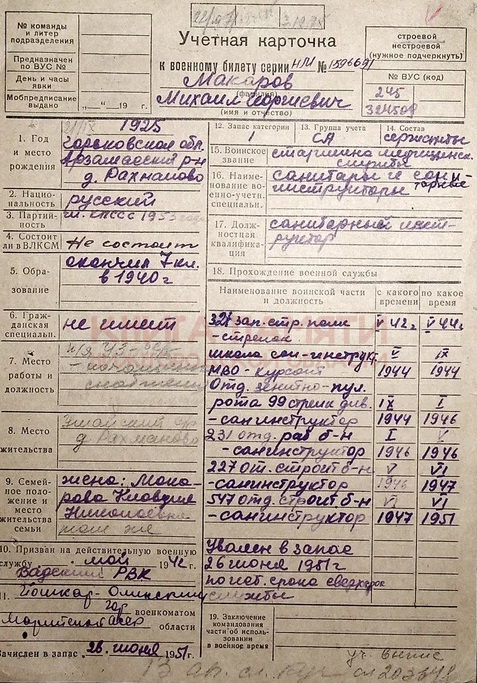 № команды
и литер
подразделения
Предназначен
по ВУС №
День и часы
явки
Мобпредписание
выдано
„ “ 19 г.
Учетная карточка
к военному билету серии НМ № 1596691
Макаров
(фамилия)
Михаил Георгиевич
(имя и отчество)
строевой
нестроевой
(нужное подчеркнуть)
№ ВУС (код)
1. Год
и место
рождения
1925
Горьковской обл.
Арзамасский р-н
д. Рахманово
2. Нацио-
нальность
русский
3. Партий-
ность
чл. КПСС 1953
4. Состоит
ли в ВЛКСМ
Не состоит
5. Обра-
зование
окончил 7 кл.
в 1940 г
6. Граж-
данская
специальн.
не имеет
7. Место
работы и
должность
8. Место
жительства
д. Рахманово
9. Семей-
ное поло-
жение и
место
жительства
семьи
жена: Мака-
рова Клавдия
Николаевна
там же
10. Призван на действительную военную
службу май 1942 г.
Вадский РВК
11. Йошкар-Олинским
гор военкоматом
области
Зачислен в запас 26 июня 1951 г.
12. Запас категории
13. Группа учета
СА
14. Состав
сержанты
15. Воинское
звание
старшина медицинск.
службы
16. Наиме-
нование во-
енно-учетн.
специальн.
санитары и сани-
тарные
инструкторы
17. Долж-
ностная
квалифика-
ция
санитарный инст-
руктор
18. Прохождение военной службы
Наименование воинской части
и должность
с какого
времени
по какое
время
зап. стр. полк V 42 г. V 44 г.
- стрелок
школа сан-инструкт. V IX
МВО - курсант 1944 1944
Отд. зенитно-пул.
рота 99 стрелк. див. IX I
- санинструктор 1944 1946
231 отд. раб б-н I V
- санинструктор 1946 1946
227 от. строит б-н V VI
- санинструктор 1946 1947
547 отд. строит б-н VI VI
- санинструктор 1947 1951
Уволен в запас
26 июня 1951 г
службы
19. Заключение
командования
части об исполь-
зовании
в военное время